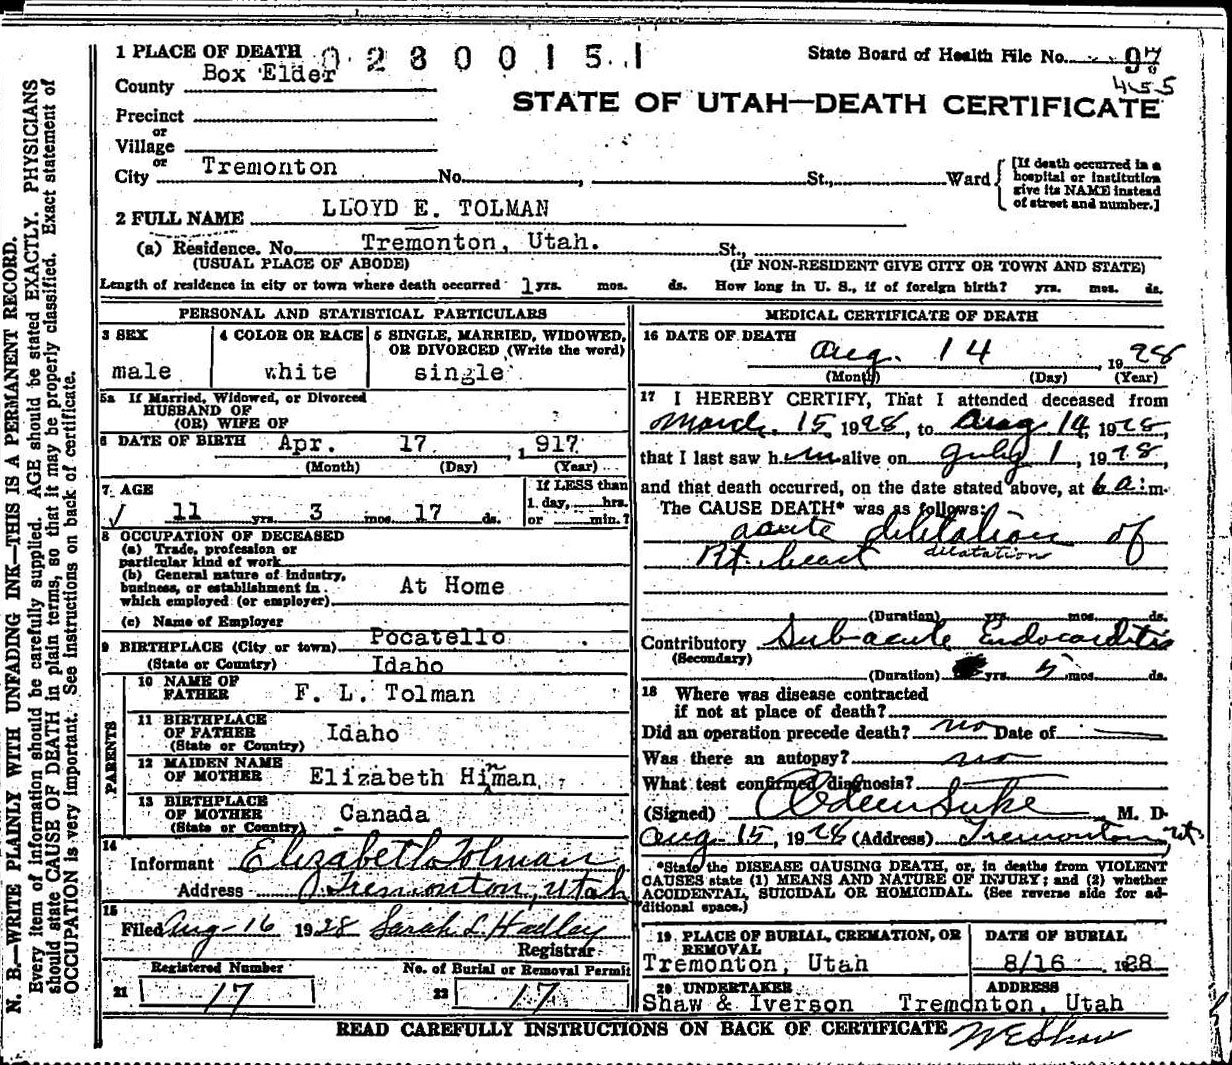 1 PLACE OF DEATH 0 2 8 0 0 1 5 1
State Board of Health File No. 97
455
County Box Elder
STATE OF UTAH—DEATH CERTIFICATE
Precinct
or
Village
or
City Tremonton No. , St., Ward
[If death occurred in a
hospital or institution
give its NAME instead
of street and number.]
2 FULL NAME LLOYD E. TOLMAN
(a) Residence. No. Tremonton, Utah. St.,
(USUAL PLACE OF ABODE) (IF NON-RESIDENT GIVE CITY OR TOWN AND STATE)
Length of residence in city or town where death occurred 1 yrs. mos. ds. How long in U. S., if of foreign birth? yrs. mos. ds.
PERSONAL AND STATISTICAL PARTICULARS
3 SEX
male
4 COLOR OR RACE
white
5 SINGLE, MARRIED, WIDOWED,
OR DIVORCED (Write the word)
single
5a If Married, Widowed, or Divorced
HUSBAND OF
(OR) WIFE OF
6 DATE OF BIRTH Apr. 17 , 1917
(Month) (Day) (Year)
7 AGE
11 yrs. 3 mos. 17 ds.
If LESS than
1 day, hrs.
or min.?
8 OCCUPATION OF DECEASED
(a) Trade, profession or
particular kind of work
(b) General nature of industry,
business, or establishment in
which employed (or employer)
At Home
(c) Name of Employer
9 BIRTHPLACE (City or town) Pocatello
(State or Country) Idaho
PARENTS
10 NAME OF
FATHER F. L. Tolman
11 BIRTHPLACE
OF FATHER Idaho
(State or Country)
12 MAIDEN NAME
OF MOTHER Elizabeth Hinman
13 BIRTHPLACE
OF MOTHER Canada
(State or Country)
14
Informant Elizabeth Tolman
Address Tremonton, Utah
15
Filed Aug 16 1928 Sarah L Hadley
Registrar
Registered Number No. of Burial or Removal Permit
21 17 22 17
MEDICAL CERTIFICATE OF DEATH
16 DATE OF DEATH
Aug. 14 , 1928
(Month) (Day) (Year)
17 I HEREBY CERTIFY, That I attended deceased from
March 15, 1928, to Aug 14, 1928,
that I last saw him alive on July 1, 1928,
and that death occurred, on the date stated above, at 6 a. m.
The CAUSE DEATH* was as follows:
acute diletation of
Rt. heart dilatation
(Duration) yrs. mos. ds.
Contributory Sub-acute Endocarditis
(Secondary)
(Duration) yrs. 5 mos. ds.
18 Where was disease contracted
if not at place of death?
Did an operation precede death? no Date of
Was there an autopsy? no
What test confirmed diagnosis?
(Signed) Odeen Luke M. D.
Aug. 15, 1928 (Address) Tremonton, Ut.
*State the DISEASE CAUSING DEATH, or, in deaths from VIOLENT
CAUSES state (1) MEANS AND NATURE OF INJURY; and (2) whether
ACCIDENTAL, SUICIDAL OR HOMICIDAL. (See reverse side for ad-
ditional space.)
19 PLACE OF BURIAL, CREMATION, OR
REMOVAL
Tremonton, Utah
DATE OF BURIAL
8/16 1928
20 UNDERTAKER ADDRESS
Shaw & Iverson Tremonton, Utah
READ CAREFULLY INSTRUCTIONS ON BACK OF CERTIFICATE W E Shaw
N. B.—WRITE PLAINLY WITH UNFADING INK—THIS IS A PERMANENT RECORD.
Every item of information should be carefully supplied. AGE should be stated EXACTLY. PHYSICIANS
should state CAUSE OF DEATH in plain terms, so that it may be properly classified. Exact statement of
OCCUPATION is very important. See instructions on back of certificate.